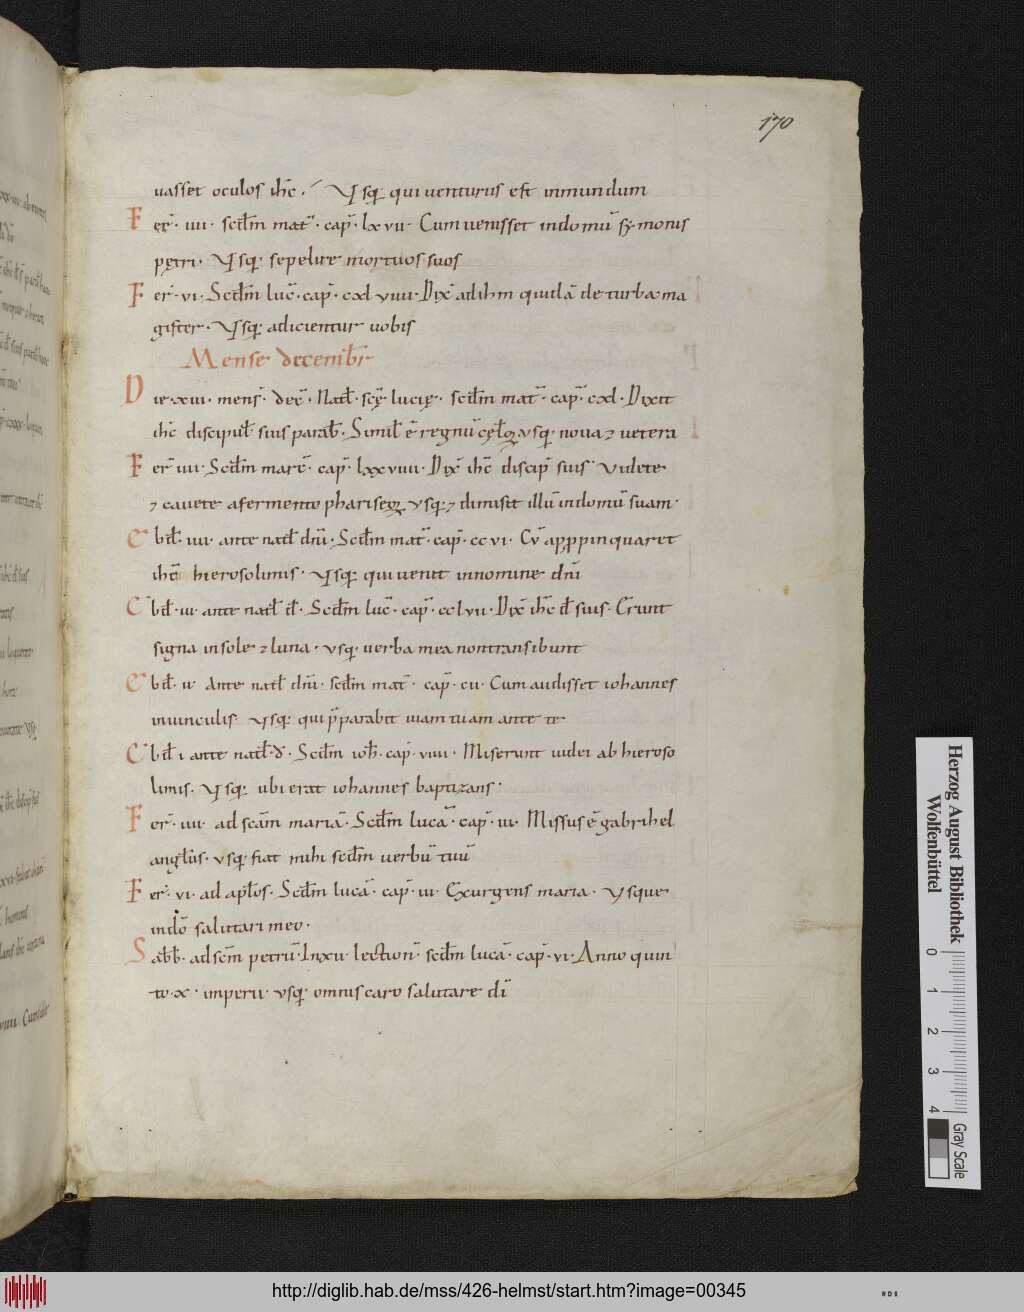 170
uasset oculos ihc̄. Vsq; qui uenturus est inmundum
Fer̄. iiii. scd̄m mat̄. cap̄. lxvii. Cum uenisset indomū symonis
pętri. Vsq; sepelire mortuos suos
Fer̄. vi. Scd̄m luc̄. cap̄. cxlviiii. Dix̄ adihm quidā de turba ma
gister. Vsq; adicientur uobis
Mense decemb̄r
Die. xiii. mens̄. dec̄. Natl̄. scę̄ lucię. scd̄m mat̄. cap̄. cxl. Dixit
ihc̄ discipul̄ suis parab̄. Simil̄ ē regnū cęl̄oꝝ vsq; noua ⁊ uetera
Fer̄ iiii. Scd̄m marc̄. cap̄. lxxviiii. Dix̄ ihc̄ discip̄ suis Videte
⁊ cauete afermento phariseoꝝ vsq; ⁊ dimisit illū indomū suam.
Ebd̄. iiii. ante natl̄ dn̄i. Scd̄m mat̄. cap̄. ccvi. Cū apppinquaret
ihc̄ hierosolimis. Vsq; qui uenit innomine dn̄i
Ebd̄. iii. ante natl̄ d̄. Scd̄m luc̄. cap̄. cclvii. Dix̄ ihc̄ d̄ suis. Er̄unt
signa insole ⁊ luna. vsq; uerba mea nontransibunt
Ebd̄. ii. Ante natl̄ dn̄i. scd̄m mat̄. cap̄. cii. Cum audisset iohannes
inuinculis vsq; qui p̄parabit uiam tuam ante te
Ebd̄ i ante natl̄. d̄. Scd̄m ioh̄. cap̄. viiii. Miserunt iudei ab hieroso
limis. Vsq; ubi erat iohannes baptizans.
Fer̄. iiii. ad scām mariā. Scd̄m lucā. cap̄. iii. Missus ē gabrihel
angl̄us. vsq; fiat mihi scd̄m uerbū tuū
Fer̄. vi. ad apl̄os. Scd̄m lucā. cap̄. iiii. Exurgens maria. Vsque
indō salutari meo.
Sabb̄. adscm̄ petrū. Inxii. lection̄. scd̄m lucā. cap̄. vi. Anno quin
to. x. imperii. vsq; omnis caro salutare dī
Herzog August Bibliothek
Wolfenbüttel
0 1 2 3 4
Gray Scale
http://diglib.hab.de/mss/426-helmst/start.htm?image=00345